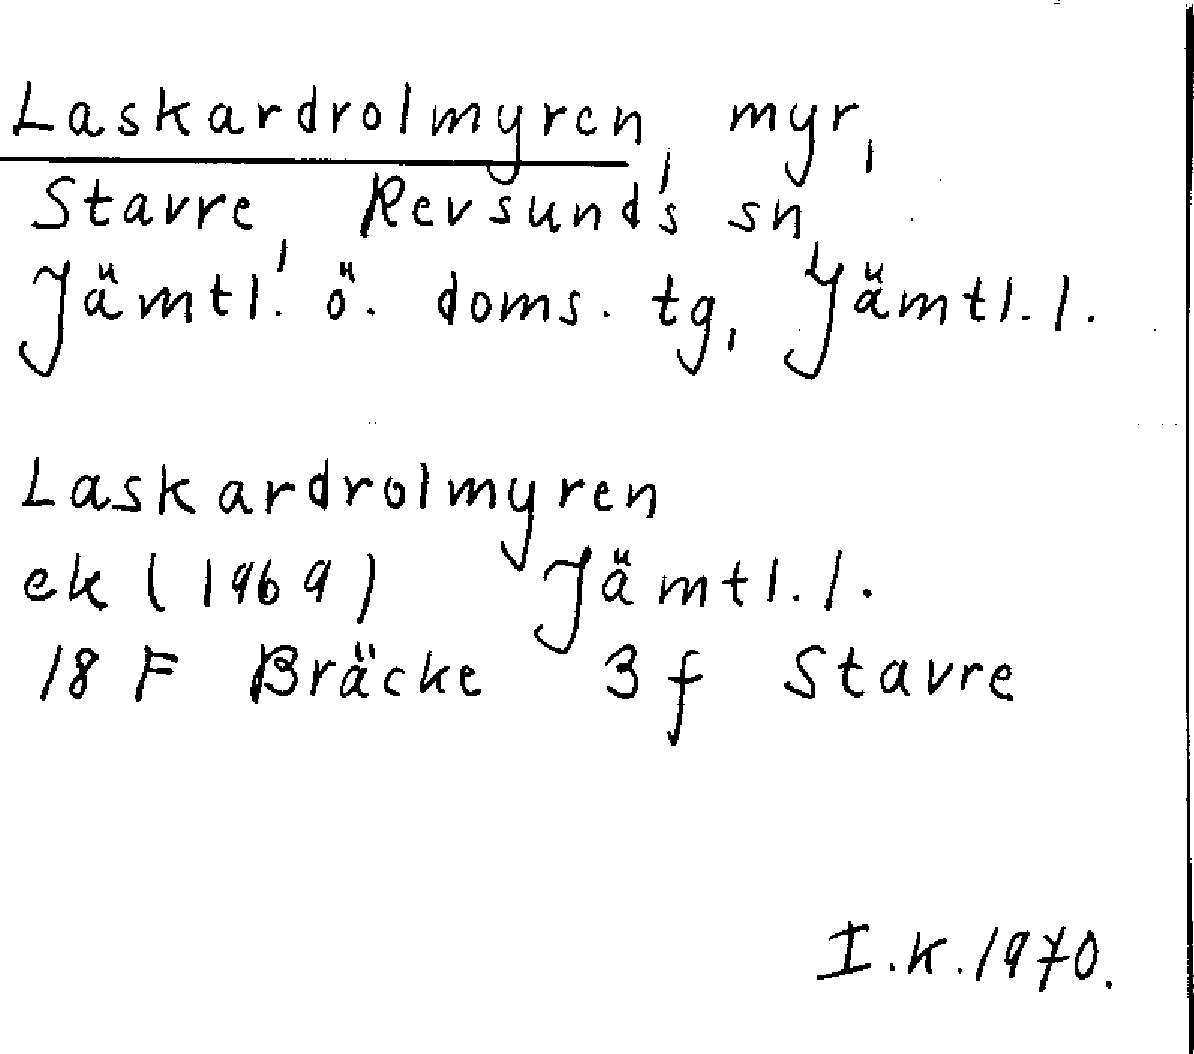 Laskardrolmyren, myr,
Stavre, Revsunds sn,
Jämtl. ö. doms. tg, Jämtl. l.
Laskardrolmyren
ek (1969) Jämtl. l.
18 F Bräcke 3 f Stavre
I.K. 1970.